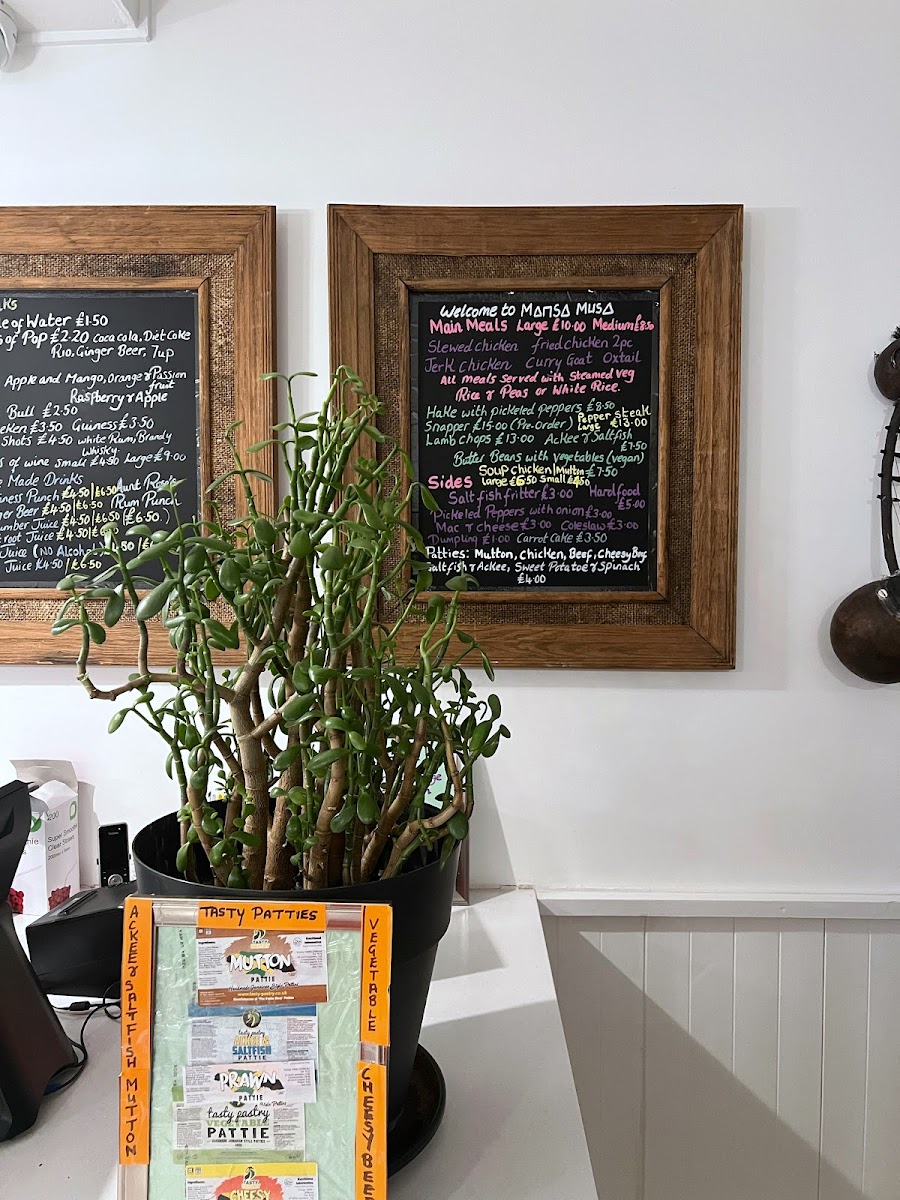 e of Water £1.50
s of Pop £2.20 Coca cola, Diet Coke
Rio, Ginger Beer, 7up
Apple and Mango, Orange & Passion
fruit
Raspberry & Apple
Bull £2.50
eken £3.50 Guiness £3.50
Shots £4.50 white Rum, Brandy
Whisky
s of wine small £4.50 Large £9.00
e Made Drinks
iness Punch £4.50/£6.50 Aunt Rosie's
ger Beer £4.50/£6.50 (Rum Punch
umber Juice £4.50/£6.50 (£6.50)
root Juice £4.50/£6
Juice (No Alcohol
Juice £4.50/£6.50
Welcome to MANSA MUSA
Main Meals Large £10.00 Medium £8.50
Stewed chicken fried chicken 2pc
Jerk chicken Curry Goat Oxtail
All meals served with steamed veg
Rice & Peas or White Rice.
Hake with pickeled peppers £8.50
Pepper steak
Snapper £15.00 (Pre-Order) Large £13.00
Lamb chops £13.00 Ackee & Saltfish
£7.50
Butter Beans with vegetables (vegan)
£7.50
Soup chicken/Mutton
Large £6.50 Small £4.50
Sides
Salt fish fritter £3.00 Hard food
£5.00
Pickeled Peppers with onion £3.00
Mac & cheese £3.00 Coleslaw £3.00
Dumpling £1.00 Carrot Cake £3.50
Patties: Mutton, chicken, Beef, Cheesy Beef,
Saltfish & Ackee, Sweet Potato & Spinach
£4.00
200
Super Smooth
Clear Straws
TASTY PATTIES
ACKEE & SALTFISH MUTTON
VEGETABLE
CHEESY BEE
TASTY
MUTTON
PATTIE
Handmade Jamaican Style Patties
www.tasty-pastry.co.uk
tasty pastry
SALTFISH
PATTIE
PRAWN
PATTIE
tasty pastry
VEGETABLE
PATTIE
HANDMADE JAMAICAN STYLE PATTIES
TASTY
CHEESY